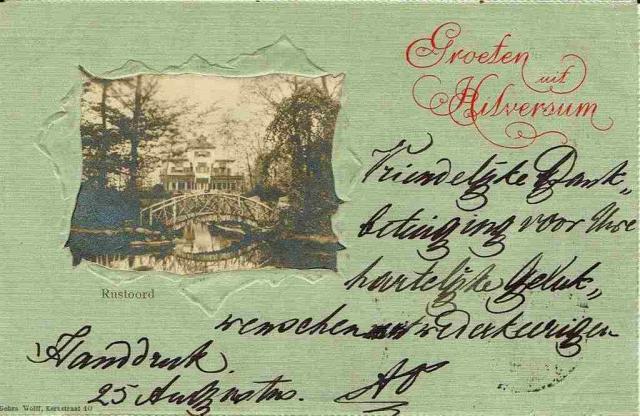 Groeten
uit
Hilversum
Vriendelijke Dank„
betuiging voor Uwe
hartelijke Geluk„
wenschen en wederkeerigen
Handdruk.
25 Augustus. AO
Rustoord
Gebrs Wolff, Kerkstraat 40